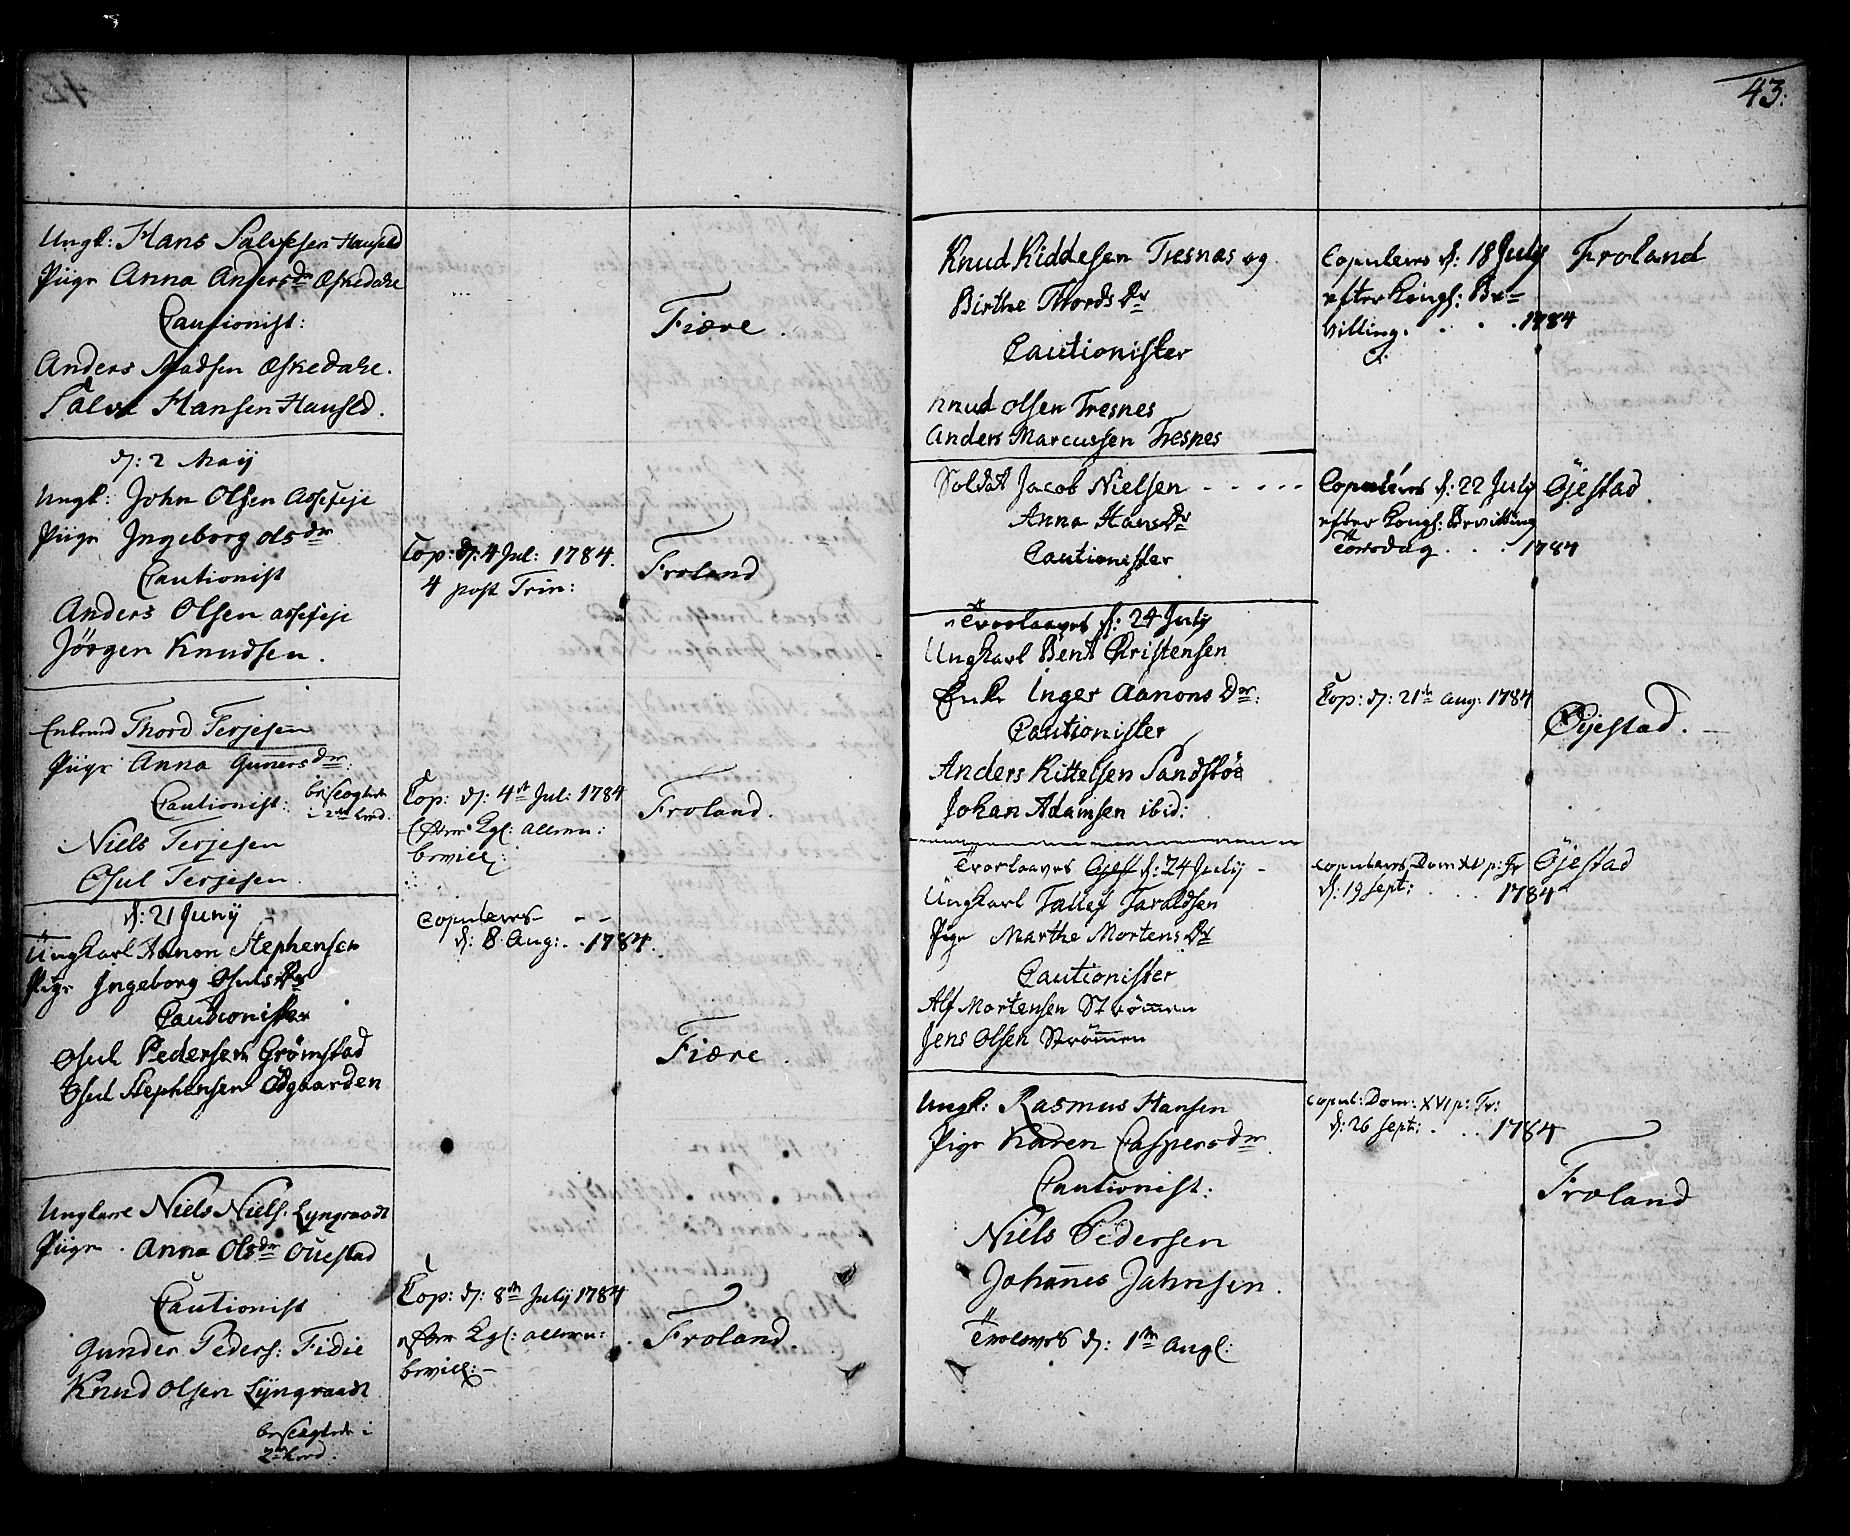 Ungk: Hans Salvesen Haufeld
Piige Anna Andersdr Eskedahl
Cautionist:
Anders Madsen Eskedahl.
Salve Hansen Haufeld.
Fiære.
d: 2 Maij
Ungk: John Olsen Assefeje
Piige Ingeborg Olsdr
Cautionist
Anders Olsen Assefeje
Jörgen Knudsen.
Cop: d: 4 Jul: 1784.
4 post Trin:
Froland
Enkemd Thord Terjesen
Piige Anna Gunersdr:
Cautionist: beslægtede
i 2det Leed.
Niels Terjesen
Osul Terjesen.
Cop: d: 4de Jul: 1784
efter Kgl: allern:
bevill:
Froland.
d: 21 Junij
Ungkarl Aanon Stephensen
Pige Ingeborg Osuls Dr
Cautionister
Osul Pedersen Grömstad
Osul Stephensen Ödgaarden
Copuleres
d: 8 Aug: . . 1784.
Fiære.
Ungkarl Niels Niels. Lyngraadt
Piige. Anna Olsdr Ouestad
Cautionist
Gunder Peders: Fidie
Knud Olsen Lÿngraadt
beslægtede i
2det Leed.
Cop: d: 8de Julij 1784
efter Kgl: allern:
bevill:
Froland.
43.
Knud Kiddelsen Tresnæs og
Birthe Thords Dr
Cautionister
Knud Olsen Tresnes
Anders Marcussen Tresnes
Copuleres d: 18 July
efter Kongl: Be-
villing. . . . . 1784
Froland
Soldat Jacob Nielsen - - - - -
Anna Hans Dr
Cautionister
Copuleres d: 22 July
efter Kongl: Bevilling
Torsdag . . . 1784
Öjestad.
Trorlaaves d: 24 July
Ungkarl Bent Christensen
Enke Inger Aanons Dr:
Cautionister
Anders Kittelsen Sandstöe
Johan Adamsen ibid:
Cop: d: 21de Aug: 1784
Öijestad.
Trorlaaves d: 24 July -
Ungkarl Tallef Taraldsen
Pige Marthe Mortens Dr
Cautionister
Alf Mortensen Strömen
Jens Olsen Strömen
Copuleres Dom XV p: Tr
d: 19 Sept: . . . 1784
Öjestad
Ungk: Rasmus Hansen
Pige Karen Caspersdr
Cautionist:
Niels Pedersen
Johanes Jahnsen.
Troloves d: 1ste Augl:
Copul: Dom: XVI p: Tr:
d: 26 Sept: . . . 1784
Froland